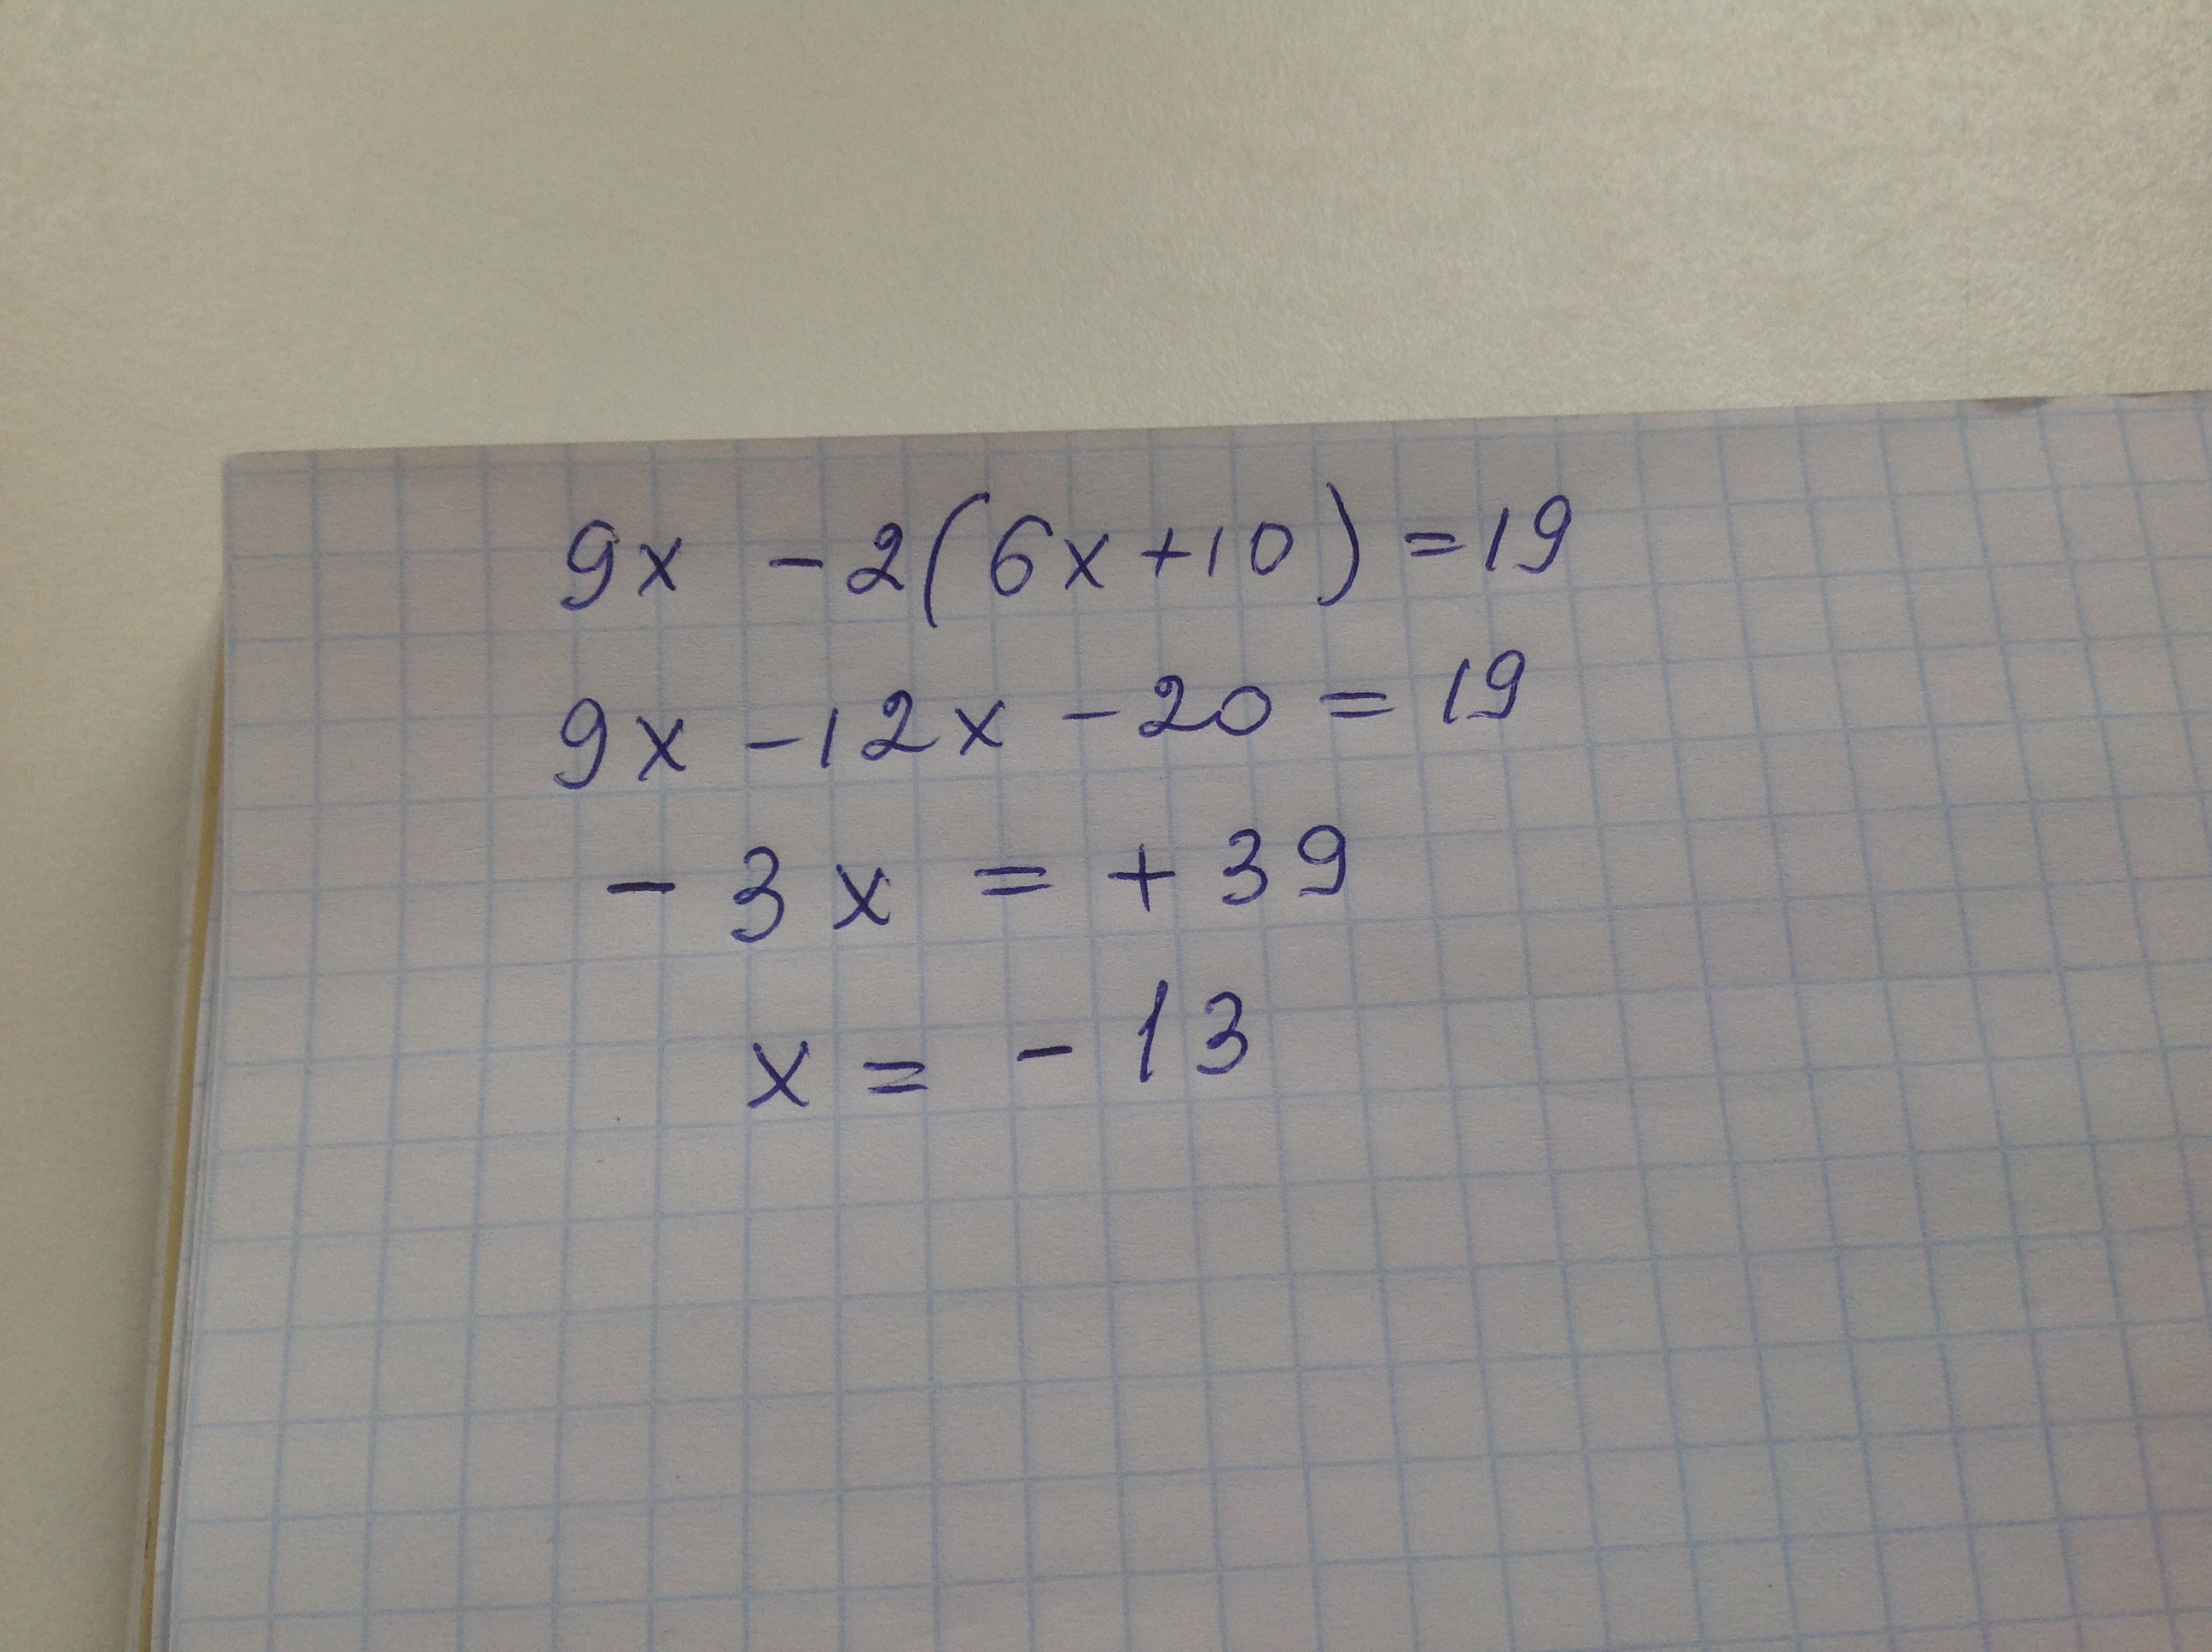 9x - 2(6x+10) = 19
9x - 12x - 20 = 19
- 3x = + 39
x = - 13